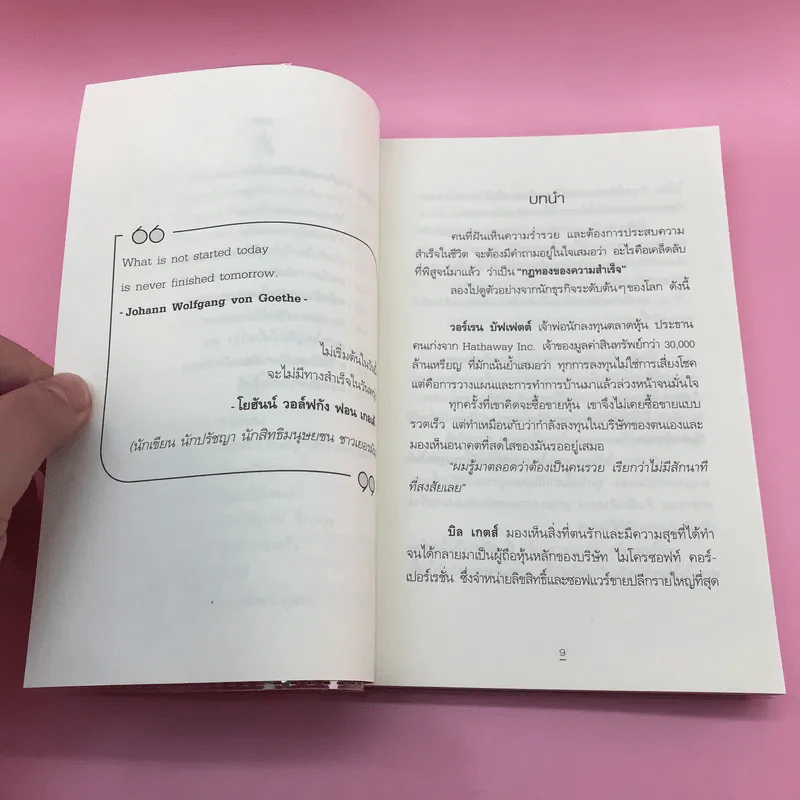 What is not started today
is never finished tomorrow.
- Johann Wolfgang von Goethe -
ไม่เริ่มต้นในวันนี้
จะไม่มีทางสำเร็จในวัน
- โยฮันน์ วอล์ฟกัง ฟอน
(นักเขียน นักปรัชญา นักสิทธิมนุษยชน
บทนำ
คนที่ฝันเห็นความร่ำรวย และต้องการประสบความ
สำเร็จในชีวิต จะต้องมีคำถามอยู่ในใจเสมอว่า อะไรคือเคล็ดลับ
ที่พิสูจน์มาแล้ว ว่าเป็น “กฎทองของความสำเร็จ”
ลองไปดูตัวอย่างจากนักธุรกิจระดับต้นๆ ของโลก ดังนี้
วอร์เรน บัฟเฟตต์ เจ้าพ่อนักลงทุนตลาดหุ้น ประธาน
คนเก่งจาก Hathaway Inc. เจ้าของมูลค่าสินทรัพย์กว่า 30,000
ล้านเหรียญ ที่มักเน้นย้ำเสมอว่า ทุกการลงทุนไม่ใช่การเสี่ยงโชค
แต่คือการวางแผนและการทำการบ้านมาแล้วล่วงหน้าจนมั่นใจ
ทุกครั้งที่เขาคิดจะซื้อขายหุ้น เขาจึงไม่เคยซื้อขายแบบ
รวดเร็ว แต่ทำเหมือนกับว่ากำลังลงทุนในบริษัทของตนเองและ
มองเห็นอนาคตที่สดใสของมันรออยู่เสมอ
“ผมรู้มาตลอดว่าต้องเป็นคนรวย เรียกว่าไม่มีสักนาที
ที่สงสัยเลย”
บิล เกตส์ มองเห็นสิ่งที่ตนรักและมีความสุขที่ได้ทำ
จนได้กลายมาเป็นผู้ถือหุ้นหลักของบริษัท ไมโครซอฟท์ คอร์-
เปอร์เรชั่น ซึ่งจำหน่ายลิขสิทธิ์และซอฟแวร์ขายปลีกรายใหญ่ที่สุด
9